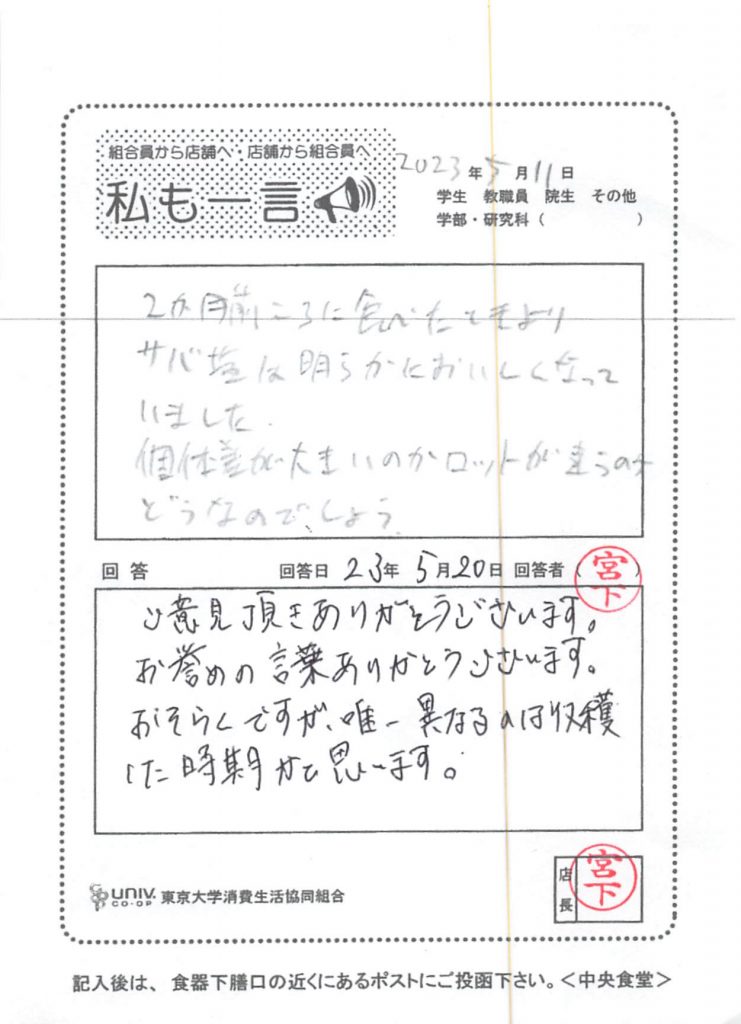 組合員から店舗へ・店舗から組合員へ
私も一言
2023年5月11日
学生 教職員 院生 その他
学部・研究科（ ）
2か月前ころに食べたときより
サバ塩は明らかにおいしくなって
いました.
個体差が大きいのかロットが違うのか
どうなのでしょう
回答 回答日 23年5月20日 回答者（宮下）
ご意見頂きありがとうございます。
お誉めの言葉ありがとうございます。
おそらくですが、唯一異なるのは収穫
した時期かと思います。
店長 宮下
UNIV. CO-OP 東京大学消費生活協同組合
記入後は、食器下膳口の近くにあるポストにご投函下さい。＜中央食堂＞